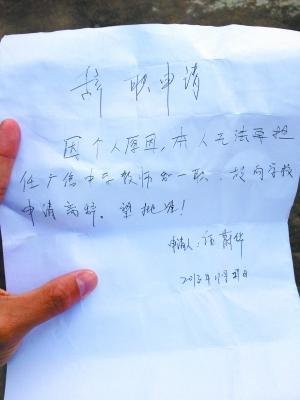 辞职申请
因个人原因,本人无法再担
任广信中学教师 一职,故向学校
申请离辞。望批准!
申请人:
2013年11月 日